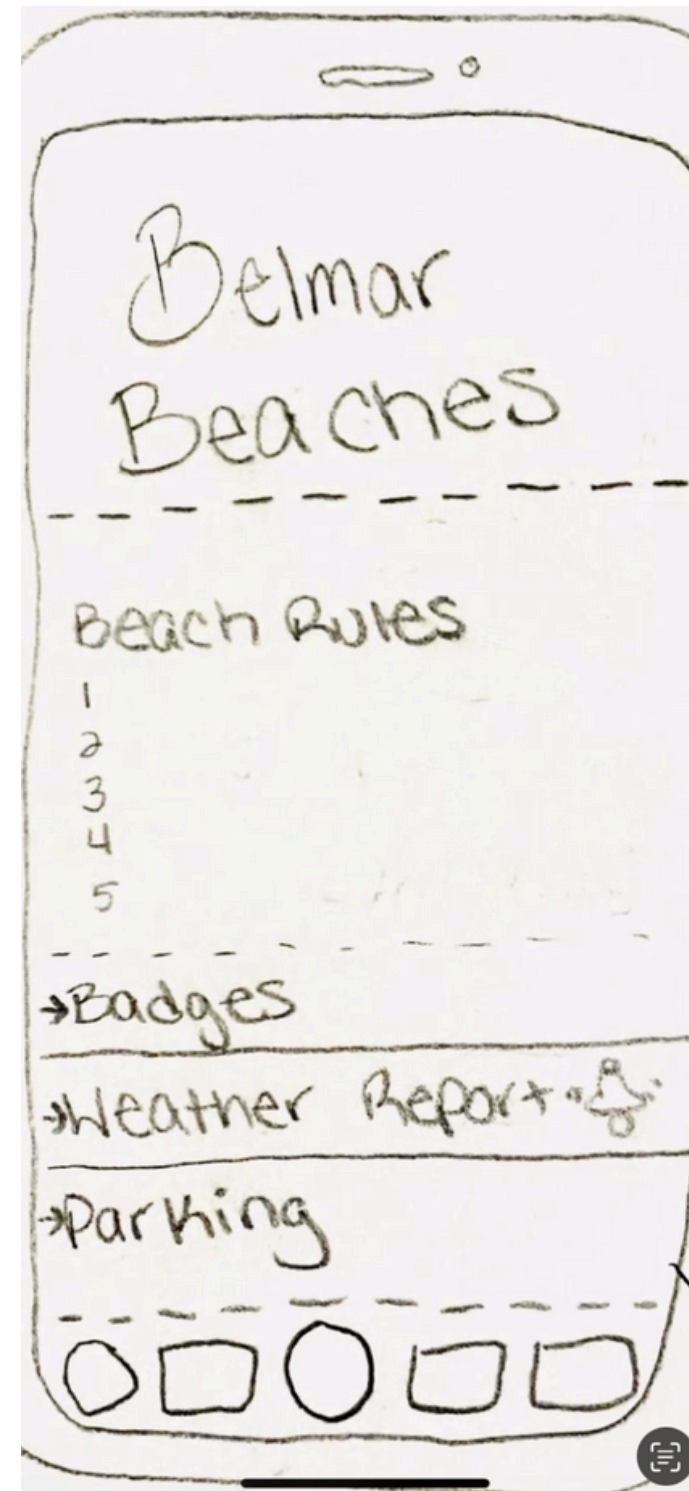 Belmar
Beaches
Beach Rules
1
2
3
4
5
→Badges
→Weather Report
→Parking